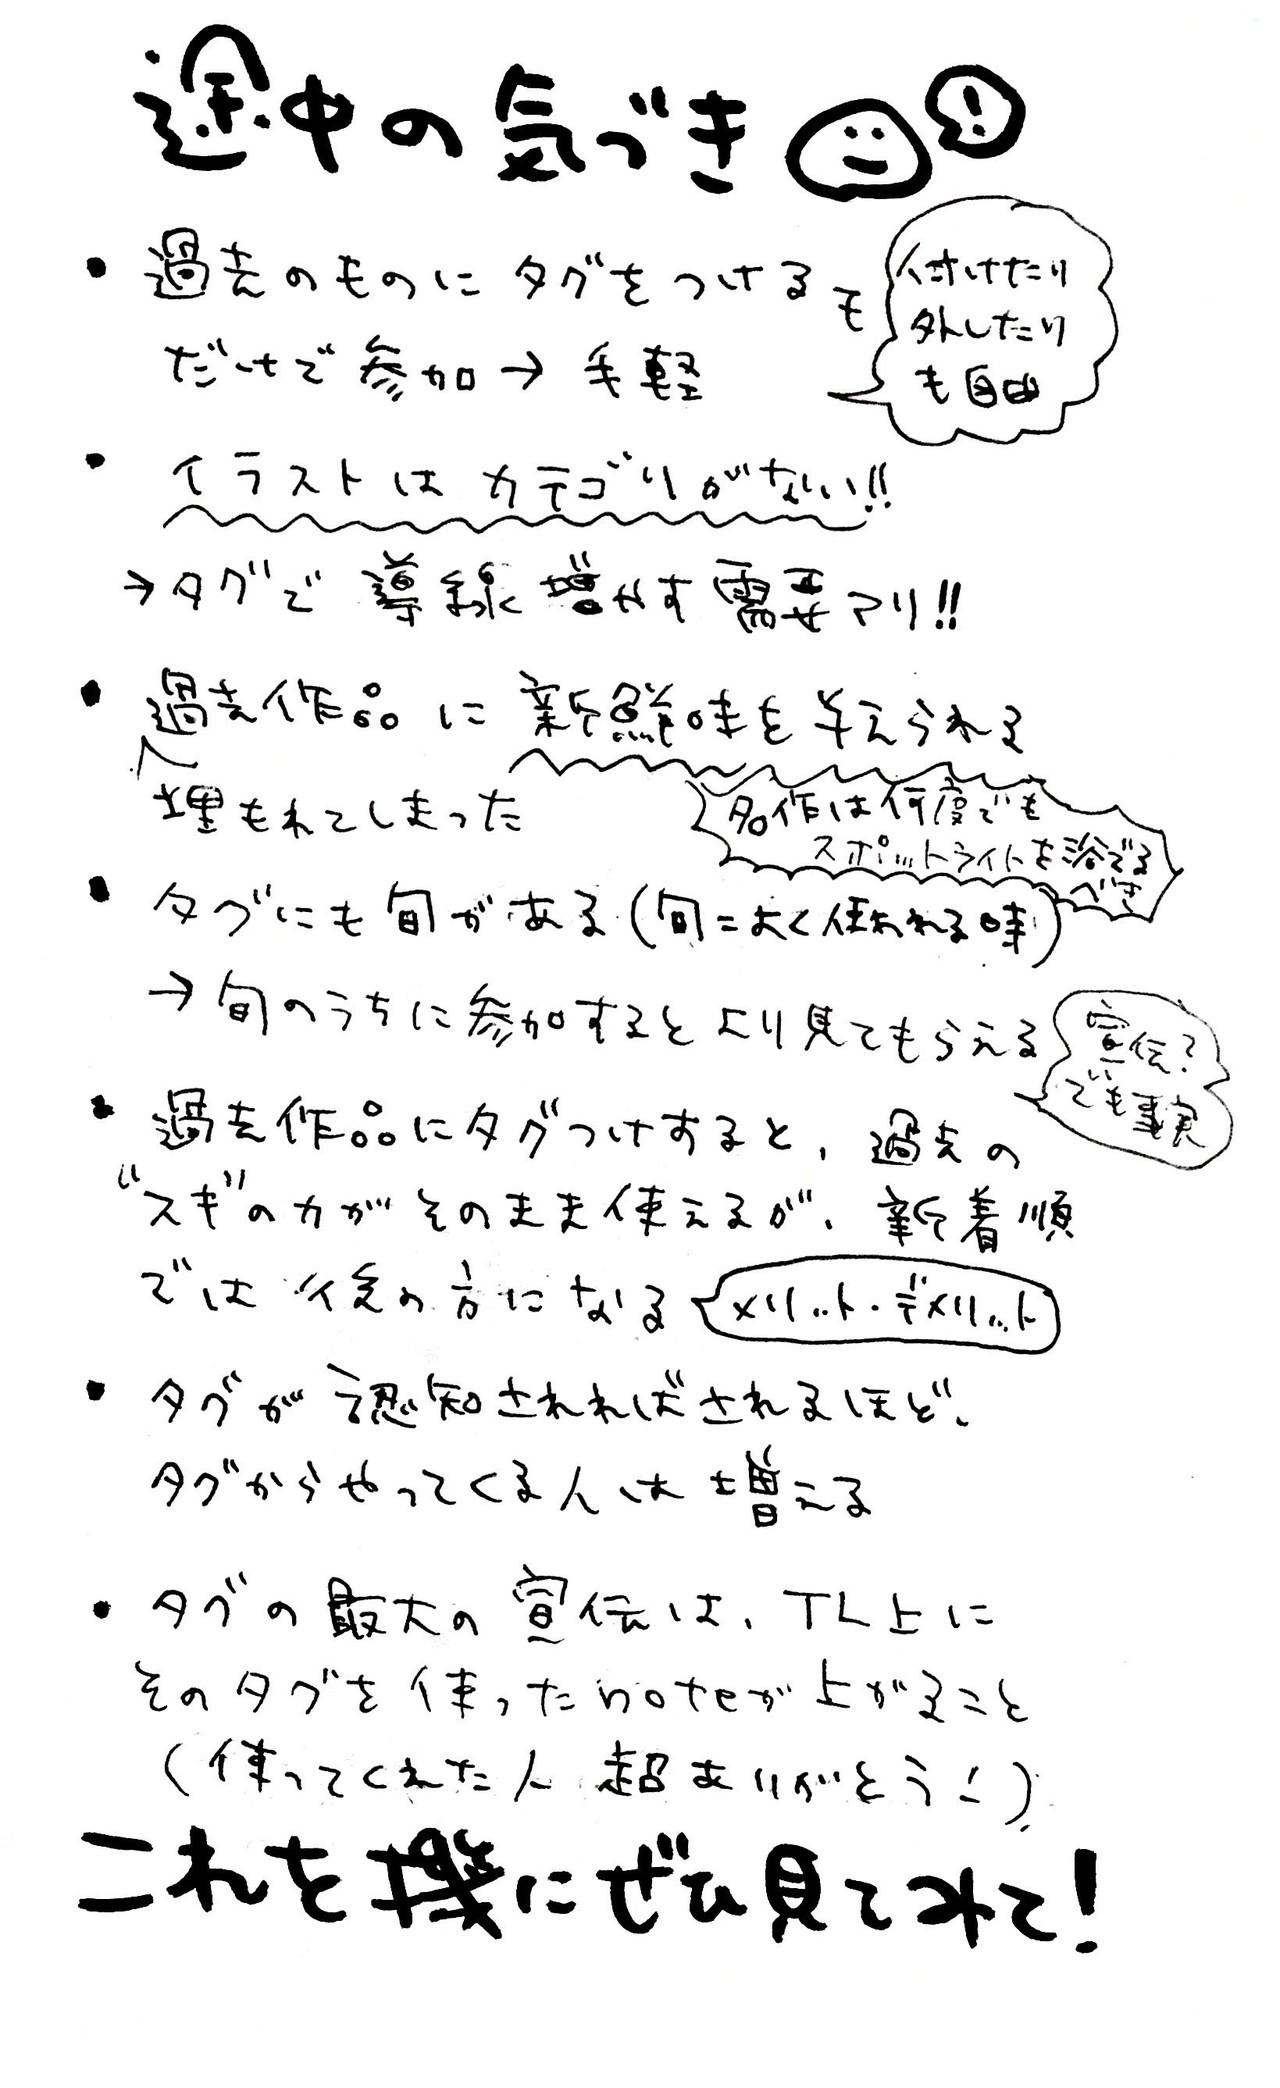 途中の気づき !
・過去のものにタグをつけるも
だけで参加→手軽
付けたり
外したり
も自由
・イラストはカテゴリがない!!
→タグで導線増やす需要アリ!!
・過去作品に新鮮味を与えられる
埋もれてしまった
名作は何度でも
スポットライトを浴びる
べき
・タグにも旬がある(旬=よく使われる時)
→旬のうちに参加するとより見てもらえる
宣伝?
でも事実
・過去作品にタグつけすると、過去の
"スキ"の力がそのまま使えるが、新着順
では後の方になる
メリット・デメリット
・タグが認知されればされるほど、
タグからやってくる人は増える
・タグの最大の宣伝は、TL上に
そのタグを使ったnoteが上がること
(使ってくれた人超ありがとう!)
これを機にぜひ見てみて!